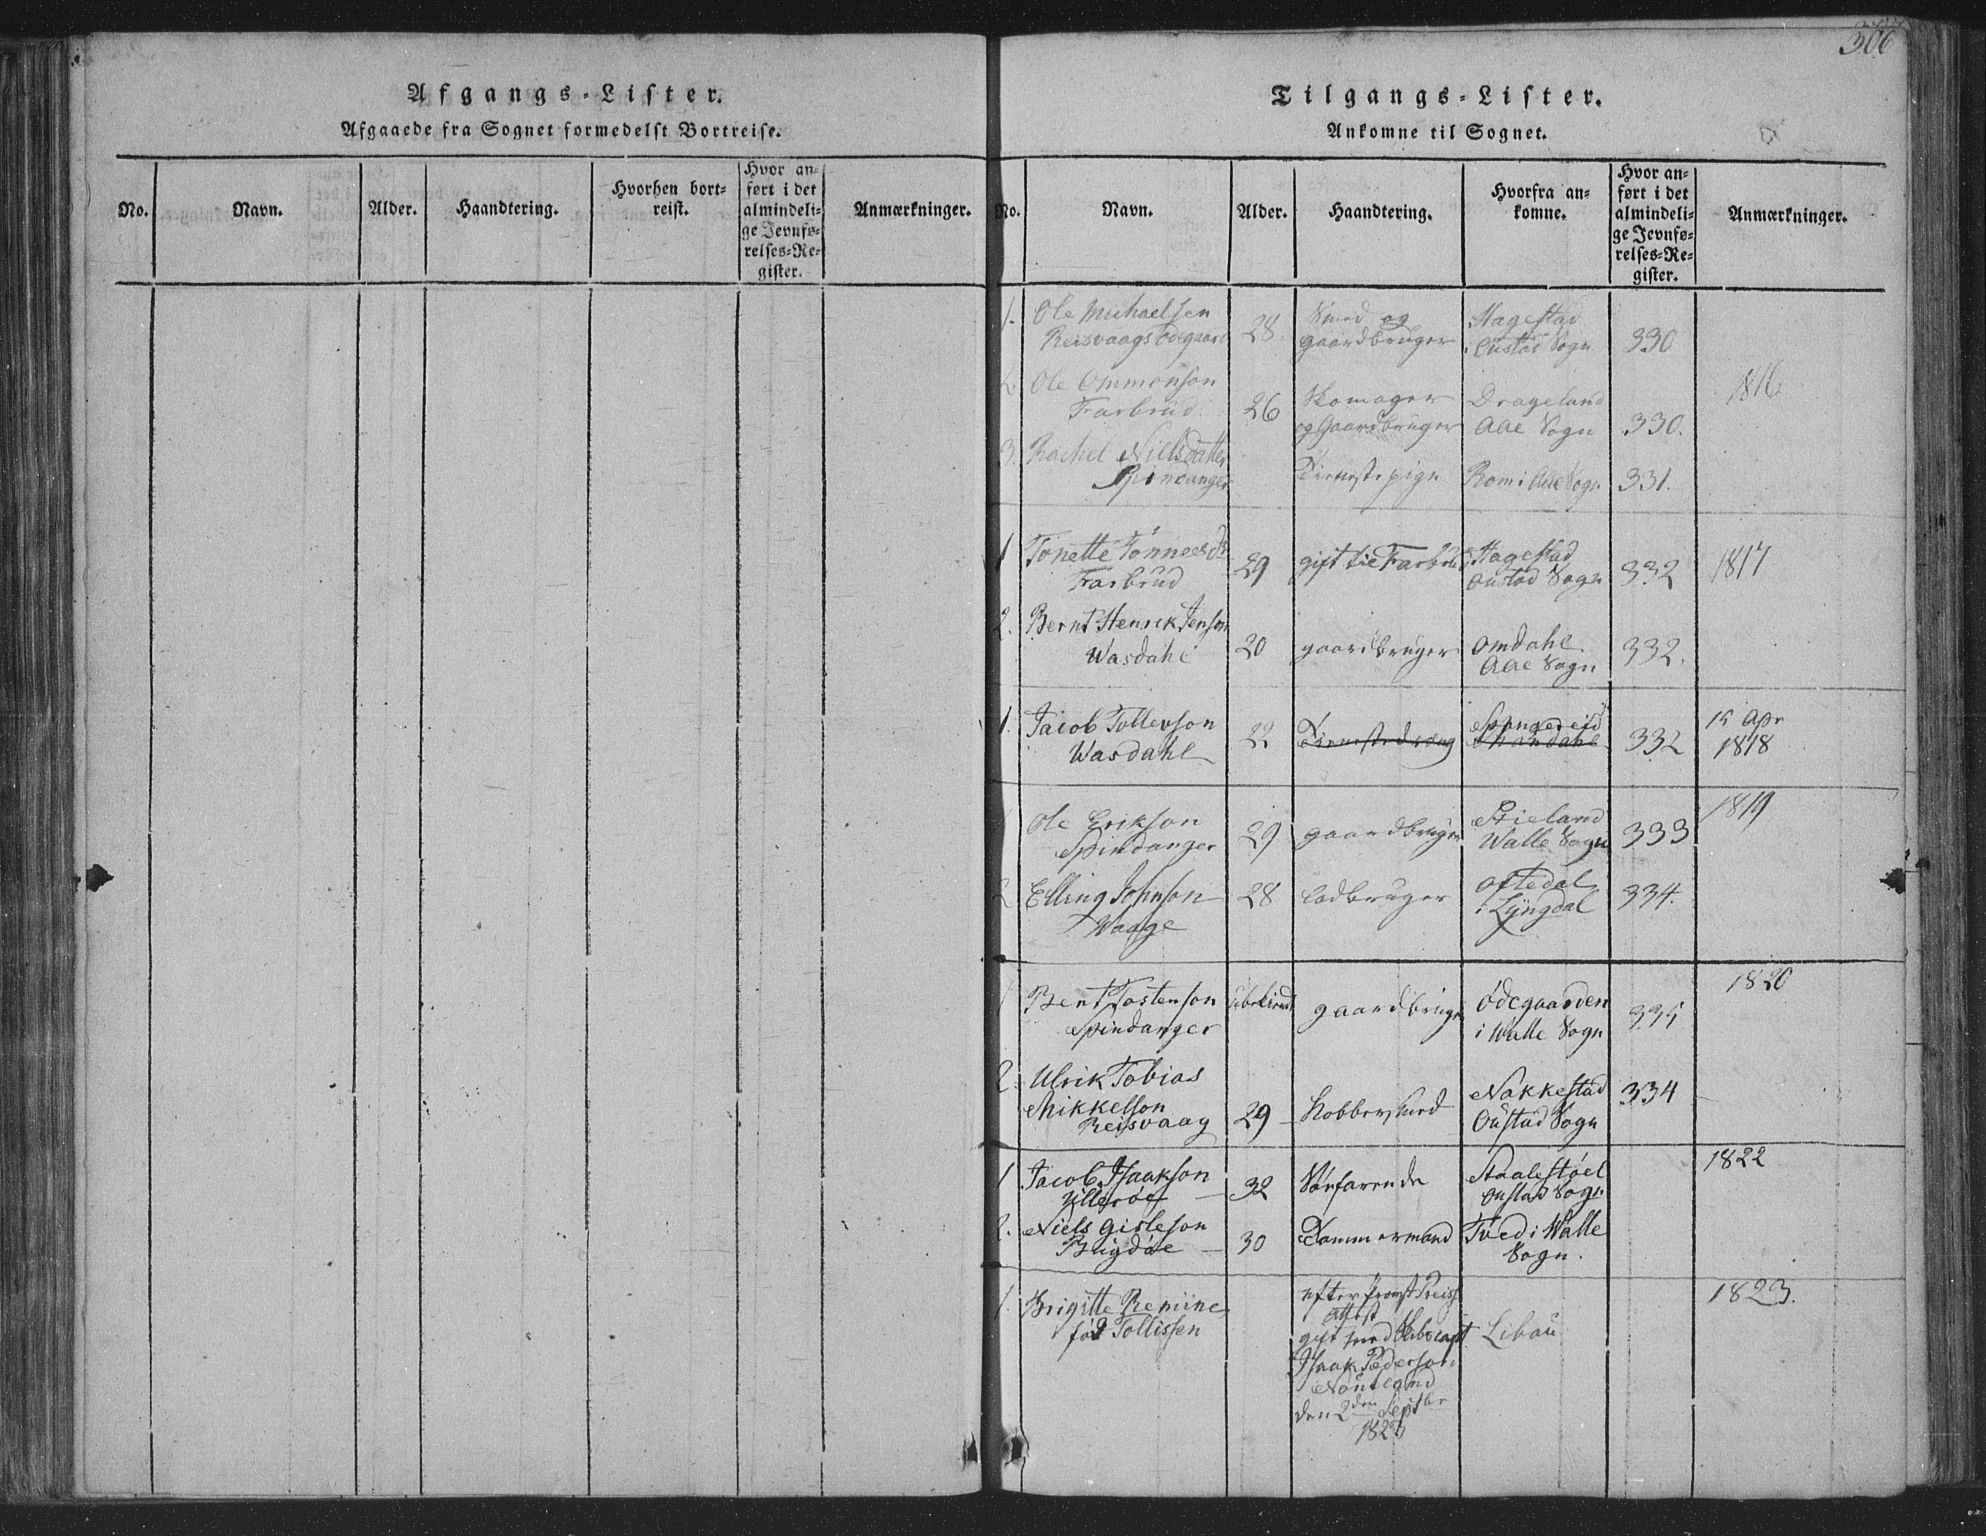 306
Afgangs-Lister.
Afgaaede fra Sognet formedelst Bortreise.
No.
Navn.
Alder.
Haandtering.
Hvorhen bort-
reist.
Hvor an-
ført i det
almindeli-
ge Jevnfø-
relses-Re-
gister.
Anmærkninger.
Tilgangs-Lister.
Ankomne til Sognet.
No.
Navn.
Alder.
Haandtering.
Hvorfra an-
komne.
Hvor an-
ført i det
almindeli-
ge Jevnfø-
relses-Re-
gister.
Anmærkninger.
1. Ole Michaelsen
Reisvaags Ødegaard
28
Smed og
gaardbruger
Hagestad
i Oustad Sogn
330
2. Ole Ommonson
Farbrud
26
Skomager
og Gaardbruger
Drageland
Aae Sogn
330.
1816
3. Rachel Nielsdatter
Spindanger
Tieneste pige
Rom i Aae Sogn
331.
1 Tonette Tønnes
Farbrud
29
gift til Farbrud
Hagestad
Oustad Sogn
332
1817
2. Bernt Henrik Jenson
Wasdahl
20
gaardbruger
Omdahl
Aae Sogn
332.
1. Jacob Tollevson
Wasdahl
22
Tienestedreng
Spangereid
332
15 Apr
1818
Ole Erikson
Spindanger
29
gaardbruger
Stieland
Walle Sogn
333
1819
2 Elling Johnson
Waage
28
Lodbruger
Oftedal
i Lyngdal
334.
1 Bent Tostenson
Spindanger
ubekiendt
gaardbruger
Ødegaarden
i Walle Sogn
335
1820
2. Ulrik Tobias
Mikkelson
Reisvaag
29
Kobbersmed
Nakkestad
Oustad Sogn
334
1 Jacob Isaakson
Yllerøe
32
Søefarende
Staalestøel
Oustad Sogn
1822
2. Niels Gisleson
Bugdøe
30
Tømmermand
Tved i Walle
Sogn.
1. Brigitte Remiine
fød Tollissen
efter Provst
attest
gift med Skibscapt
Isaak Pederson
den 2den Septbr
1823
Libau
1823.